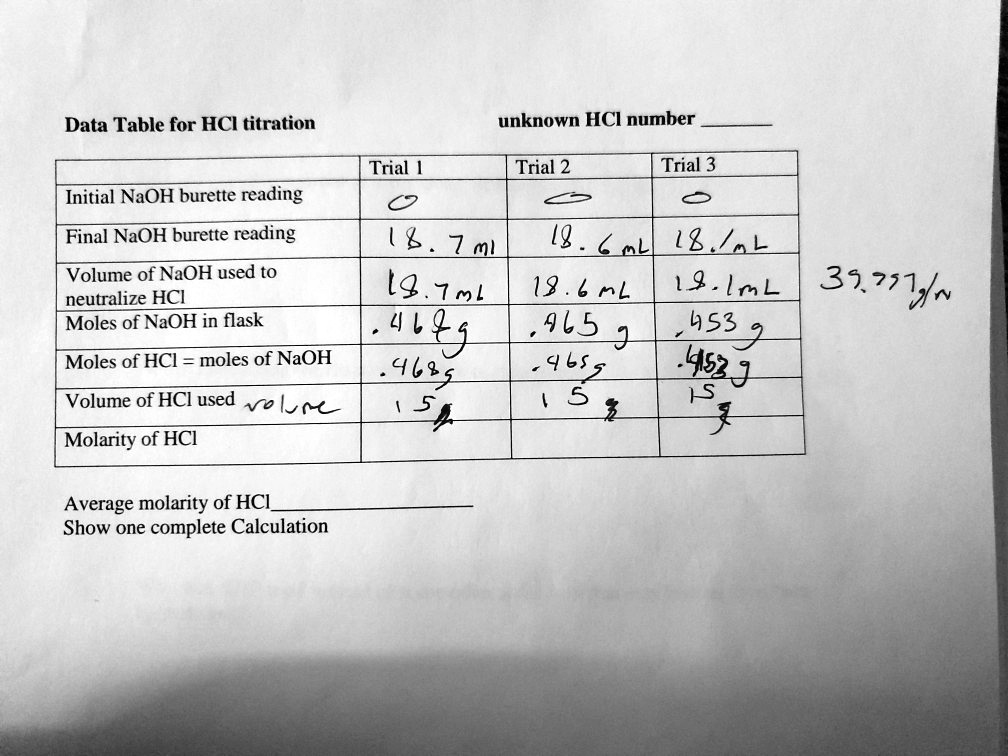 Data Table for HCl titration unknown HCl number ______
Trial 1 Trial 2 Trial 3
Initial NaOH burette reading 0 0 0
Final NaOH burette reading 18.7 ml 18.6 mL 18.1mL
Volume of NaOH used to
neutralize HCl 18.7mL 18.6 mL 18.1mL
Moles of NaOH in flask .468g .465 g .453 g
Moles of HCl = moles of NaOH .468g .465g .453 g
Volume of HCl used volume 15 15 15
Molarity of HCl
Average molarity of HCl______
Show one complete Calculation